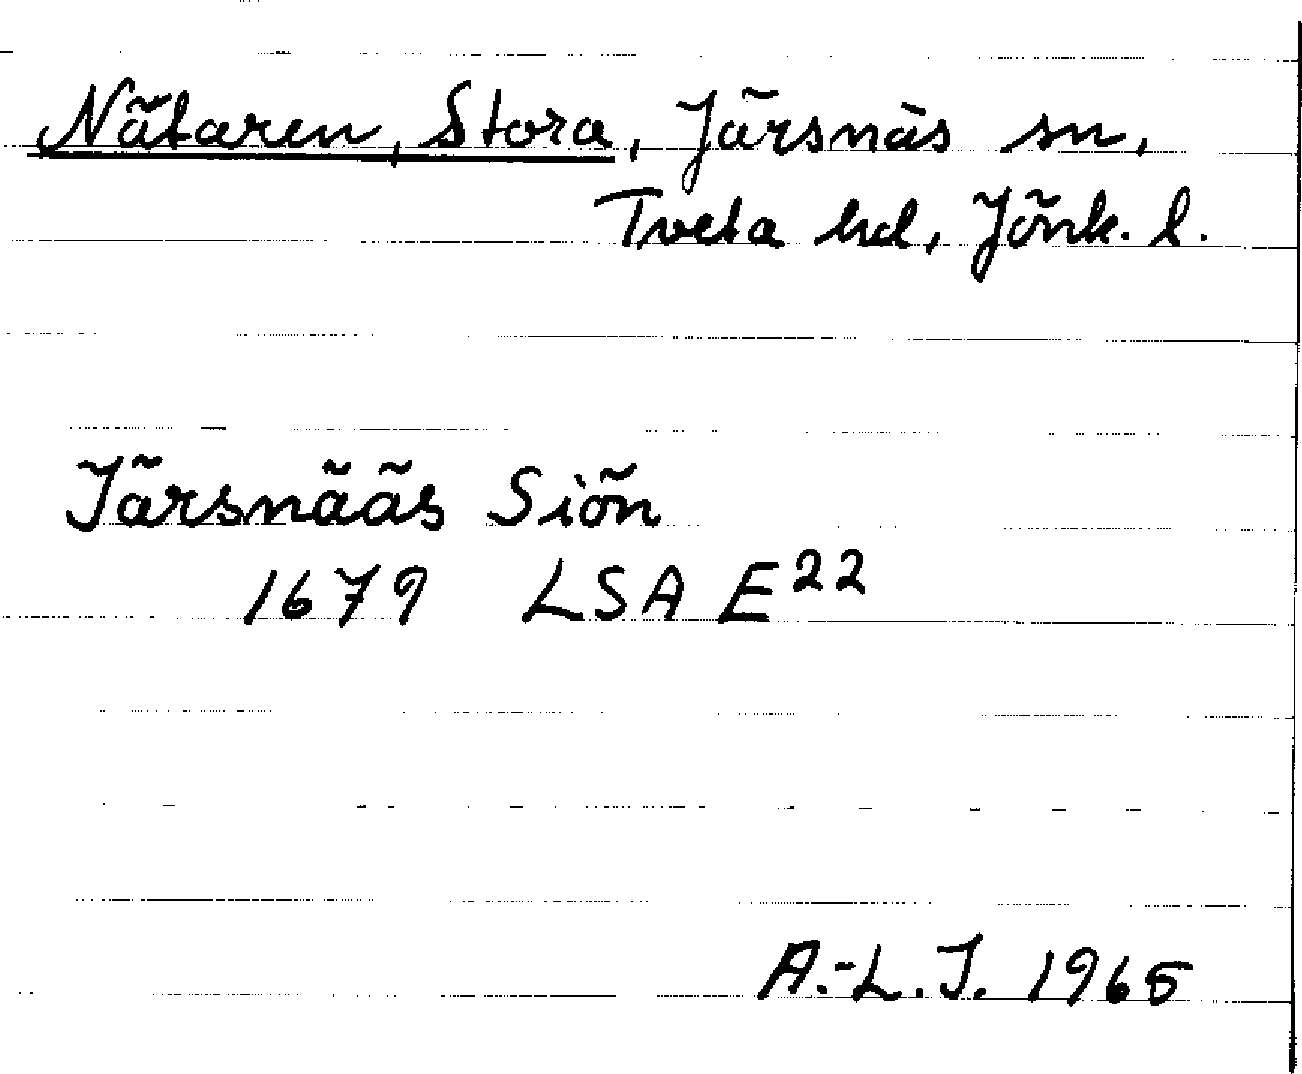 Nätaren, Stora, Järsnäs sn,
Tveta hd, Jönk. l.
Järsnääs Siön
1679 LSA E22
A.-L. J. 1965